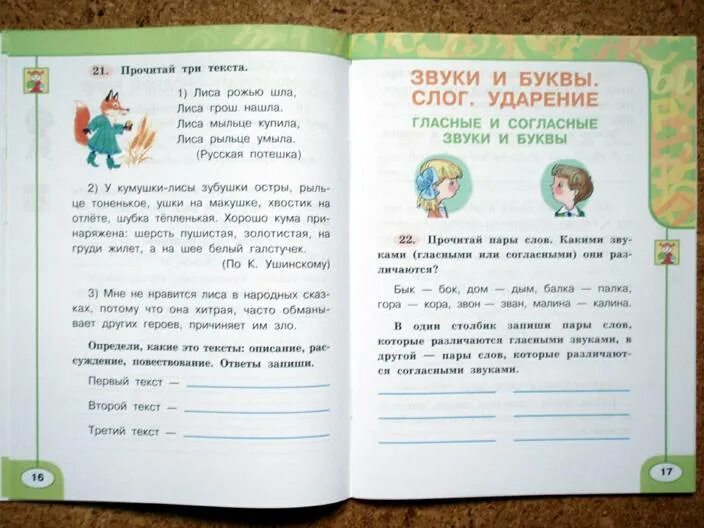 21. Прочитай три текста.
1) Лиса рожью шла,
Лиса грош нашла.
Лиса мыльце купила,
Лиса рыльце умыла.
(Русская потешка)
2) У кумушки-лисы зубушки остры, рыль-
це тоненькое, ушки на макушке, хвостик на
отлёте, шубка тёпленькая. Хорошо кума при-
наряжена: шерсть пушистая, золотистая, на
груди жилет, а на шее белый галстучек.
(По К. Ушинскому)
3) Мне не нравится лиса в народных сказ-
ках, потому что она хитрая, часто обманы-
вает других героев, причиняет им зло.
Определи, какие это тексты: описание, рас-
суждение, повествование. Ответы запиши.
Первый текст —
Второй текст —
Третий текст —
16
ЗВУКИ И БУКВЫ.
СЛОГ. УДАРЕНИЕ
ГЛАСНЫЕ И СОГЛАСНЫЕ
ЗВУКИ И БУКВЫ
22. Прочитай пары слов. Какими зву-
ками (гласными или согласными) они раз-
личаются?
Бык — бок, дом — дым, балка — палка,
гора — кора, звон — зван, малина — калина.
В один столбик запиши пары слов,
которые различаются гласными звуками, в
другой — пары слов, которые различают-
ся согласными звуками.
17